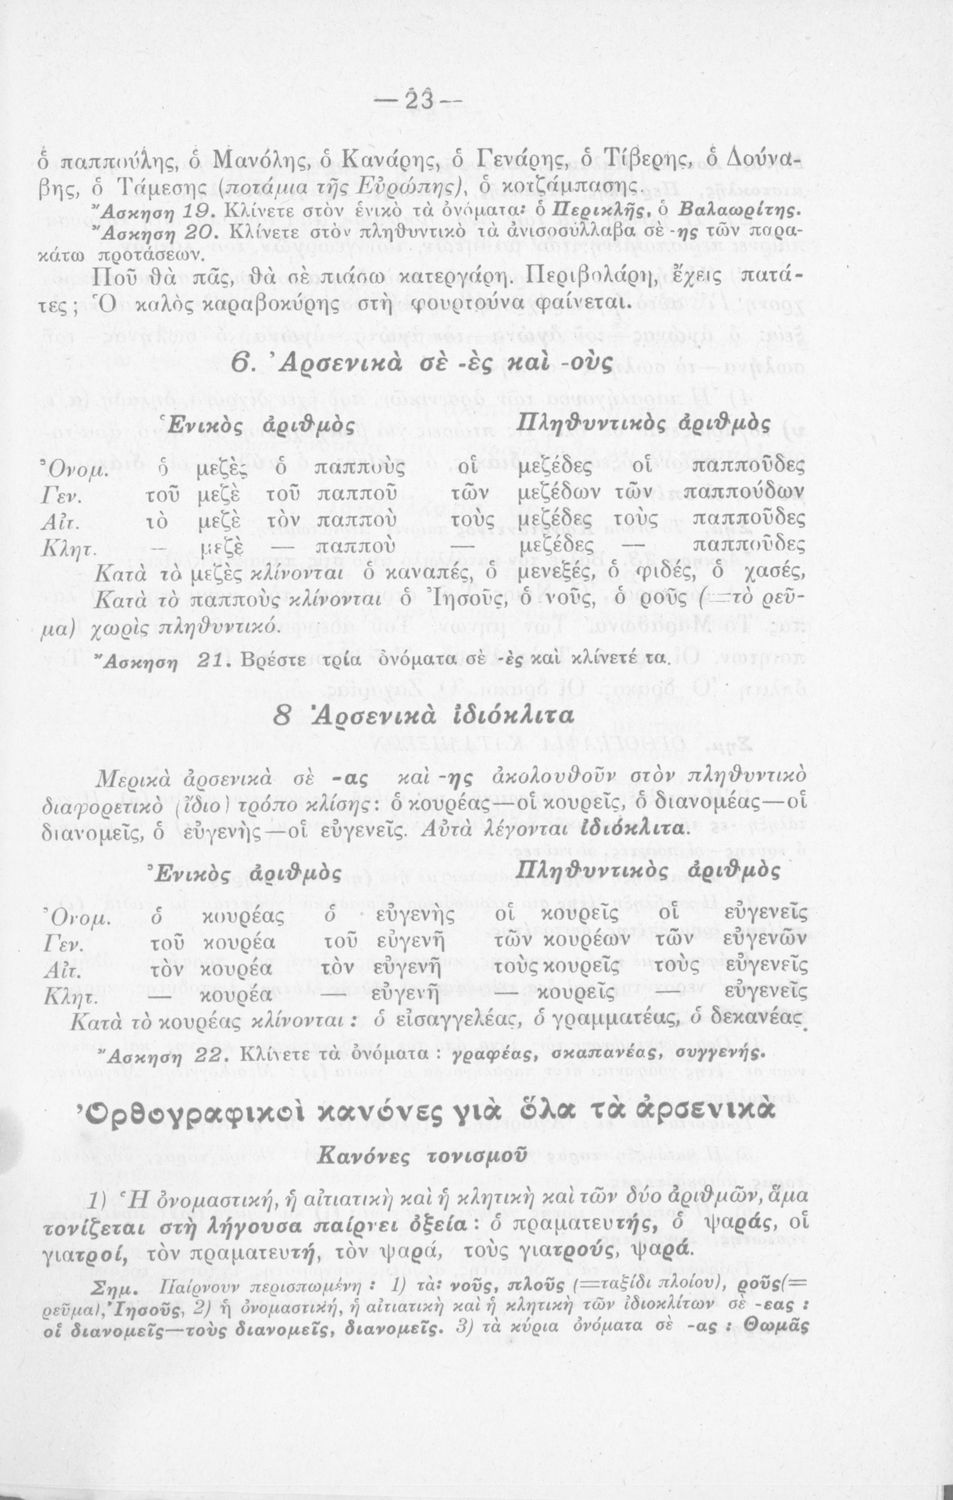 — 23 —
ὁ παππούλης, ὁ Μανόλης, ὁ Κανάρης, ὁ Γενάρης, ὁ Τίβερης, ὁ Δούνα-
βης, ὁ Τάμεσης (ποτάμια τῆς Εὐρώπης), ὁ κοτζάμπασης.
Ἄσκηση 19. Κλίνετε στὸν ἑνικὸ τὰ ὀνόματα: ὁ Περικλῆς, ὁ Βαλαωρίτης.
Ἄσκηση 20. Κλίνετε στὸν πληθυντικὸ τὰ ἀνισοσύλλαβα σὲ -ης τῶν παρα-
κάτω προτάσεων.
Ποῦ θὰ πᾶς, θὰ σὲ πιάσω κατεργάρη. Περιβολάρη, ἔχεις πατά-
τες; Ὁ καλὸς καραβοκύρης στὴ φουρτούνα φαίνεται.
6. Ἀρσενικὰ σὲ -ὲς καὶ -οὺς
Ἑνικὸς ἀριθμὸς Πληθυντικὸς ἀριθμὸς
Ὀνομ. ὁ μεζὲς ὁ παπποὺς οἱ μεζέδες οἱ παπποῦδες
Γεν. τοῦ μεζὲ τοῦ παπποῦ τῶν μεζέδων τῶν παππούδων
Αἰτ. τὸ μεζὲ τὸν παπποὺ τοὺς μεζέδες τοὺς παπποῦδες
Κλητ. — μεζὲ — παπποὺ — μεζέδες — παπποῦδες
Κατὰ τὸ μεζὲς κλίνονται ὁ καναπές, ὁ μενεξές, ὁ φιδές, ὁ χασές,
Κατὰ τὸ παπποὺς κλίνονται ὁ Ἰησοῦς, ὁ νοῦς, ὁ ροῦς (=τὸ ρεῦ-
μα) χωρὶς πληθυντικό.
Ἄσκηση 21. Βρέστε τρία ὀνόματα σὲ -ὲς καὶ κλίνετέ τα.
8 Ἀρσενικὰ ἰδιόκλιτα
Μερικὰ ἀρσενικὰ σὲ -ας καὶ -ης ἀκολουθοῦν στὸν πληθυντικὸ
διαφορετικὸ (ἴδιο) τρόπο κλίσης: ὁ κουρέας—οἱ κουρεῖς, ὁ διανομέας—οἱ
διανομεῖς, ὁ εὐγενὴς—οἱ εὐγενεῖς. Αὐτὰ λέγονται ἰδιόκλιτα.
Ἑνικὸς ἀριθμὸς Πληθυντικὸς ἀριθμὸς
Ὀνομ. ὁ κουρέας ὁ εὐγενὴς οἱ κουρεῖς οἱ εὐγενεῖς
Γεν. τοῦ κουρέα τοῦ εὐγενῆ τῶν κουρέων τῶν εὐγενῶν
Αἰτ. τὸν κουρέα τὸν εὐγενῆ τοὺς κουρεῖς τοὺς εὐγενεῖς
Κλητ. — κουρέα — εὐγενῆ — κουρεῖς — εὐγενεῖς
Κατὰ τὸ κουρέας κλίνονται: ὁ εἰσαγγελέας, ὁ γραμματέας, ὁ δεκανέας.
Ἄσκηση 22. Κλίνετε τὰ ὀνόματα: γραφέας, σκαπανέας, συγγενής.
Ὀρθογραφικοὶ κανόνες γιὰ ὅλα τὰ ἀρσενικὰ
Κανόνες τονισμοῦ
1) Ἡ ὀνομαστική, ἡ αἰτιατικὴ καὶ ἡ κλητικὴ καὶ τῶν δύο ἀριθμῶν, ἅμα
τονίζεται στὴ λήγουσα παίρνει ὀξεία: ὁ πραματευτής, ὁ ψαράς, οἱ
γιατροί, τὸν πραματευτή, τὸν ψαρά, τοὺς γιατρούς, ψαρά.
Σημ. Παίρνουν περισπωμένη: 1) τὰ: νοῦς, πλοῦς (=ταξίδι πλοίου), ροῦς(=
ρεῦμα), Ἰησοῦς, 2) ἡ ὀνομαστική, ἡ αἰτιατικὴ καὶ ἡ κλητικὴ τῶν ἰδιοκλίτων σὲ -εας:
οἱ διανομεῖς—τοὺς διανομεῖς, διανομεῖς. 3) τὰ κύρια ὀνόματα σὲ -ας: Θωμᾶς